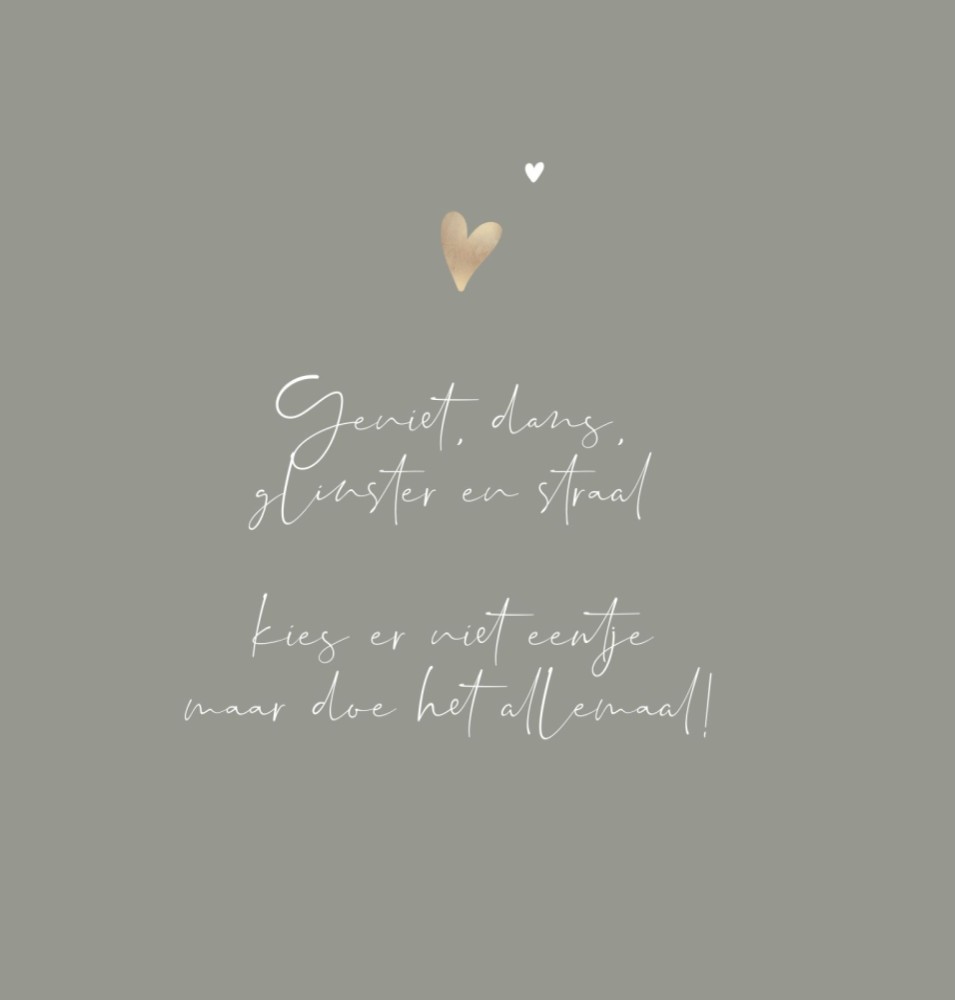 Geniet, dans,
glinster en straal
kies er niet eentje
maar doe het allemaal!